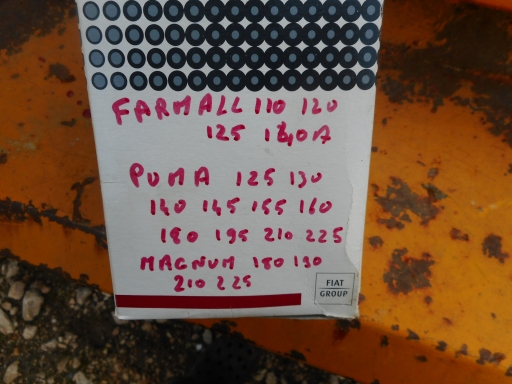 FARMALL 110 120
125 140A
PUMA 125 130
140 145 155 160
180 195 210 225
MAGNUM 180 190
210 225
FIAT
GROUP